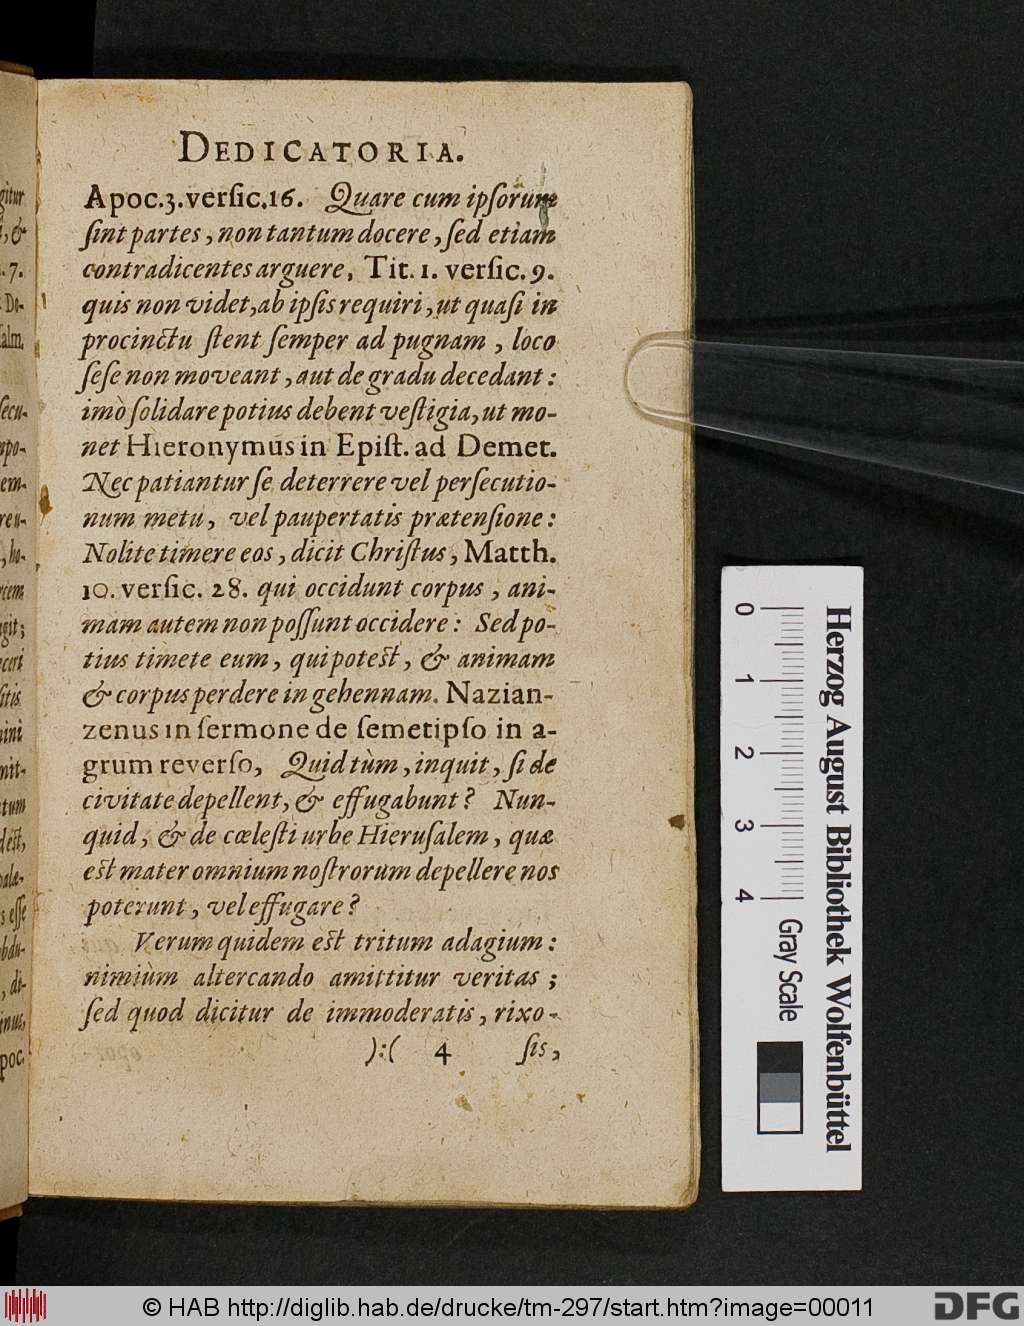 DEDICATORIA.
Apoc. 3. verſic. 16. Quare cum ipſorum
ſint partes, non tantum docere, ſed etiam
contradicentes arguere, Tit. 1. verſic. 9.
quis non videt, ab ipſis requiri, ut quaſi in
procinctu ſtent ſemper ad pugnam, loco
ſeſe non moveant, aut de gradu decedant:
imò ſolidare potius debent veſtigia, ut mo-
net Hieronymus in Epiſt. ad Demet.
Nec patiantur ſe deterrere vel perſecutio-
num metu, vel paupertatis prætenſione:
Nolite timere eos, dicit Chriſtus, Matth.
10. verſic. 28. qui occidunt corpus, ani-
mam autem non poſſunt occidere: Sed po-
tius timete eum, qui poteſt, & animam
& corpus perdere in gehennam. Nazian-
zenus in ſermone de ſemetipſo in a-
grum reverſo, Quid tùm, inquit, ſi de
civitate depellent, & effugabunt? Nun-
quid, & de cœleſti urbe Hieruſalem, quæ
eſt mater omnium noſtrorum depellere nos
poterunt, vel effugare?
Verum quidem eſt tritum adagium:
nimiùm altercando amittitur veritas;
ſed quod dicitur de immoderatis, rixo-
):( 4 ſis,
gitur
, &
. 7.
De-
ſalm.
ſecu-
mpo-
em-
reu-
, ho-
rcem
git;
ceri
ſitis
nini
mit-
tum
deſt,
palæ-
s eſſe
bdu-
, di-
inus,
poc.
0 1 2 3 4
Gray Scale
Herzog August Bibliothek Wolfenbüttel
© HAB http://diglib.hab.de/drucke/tm-297/start.htm?image=00011
DFG